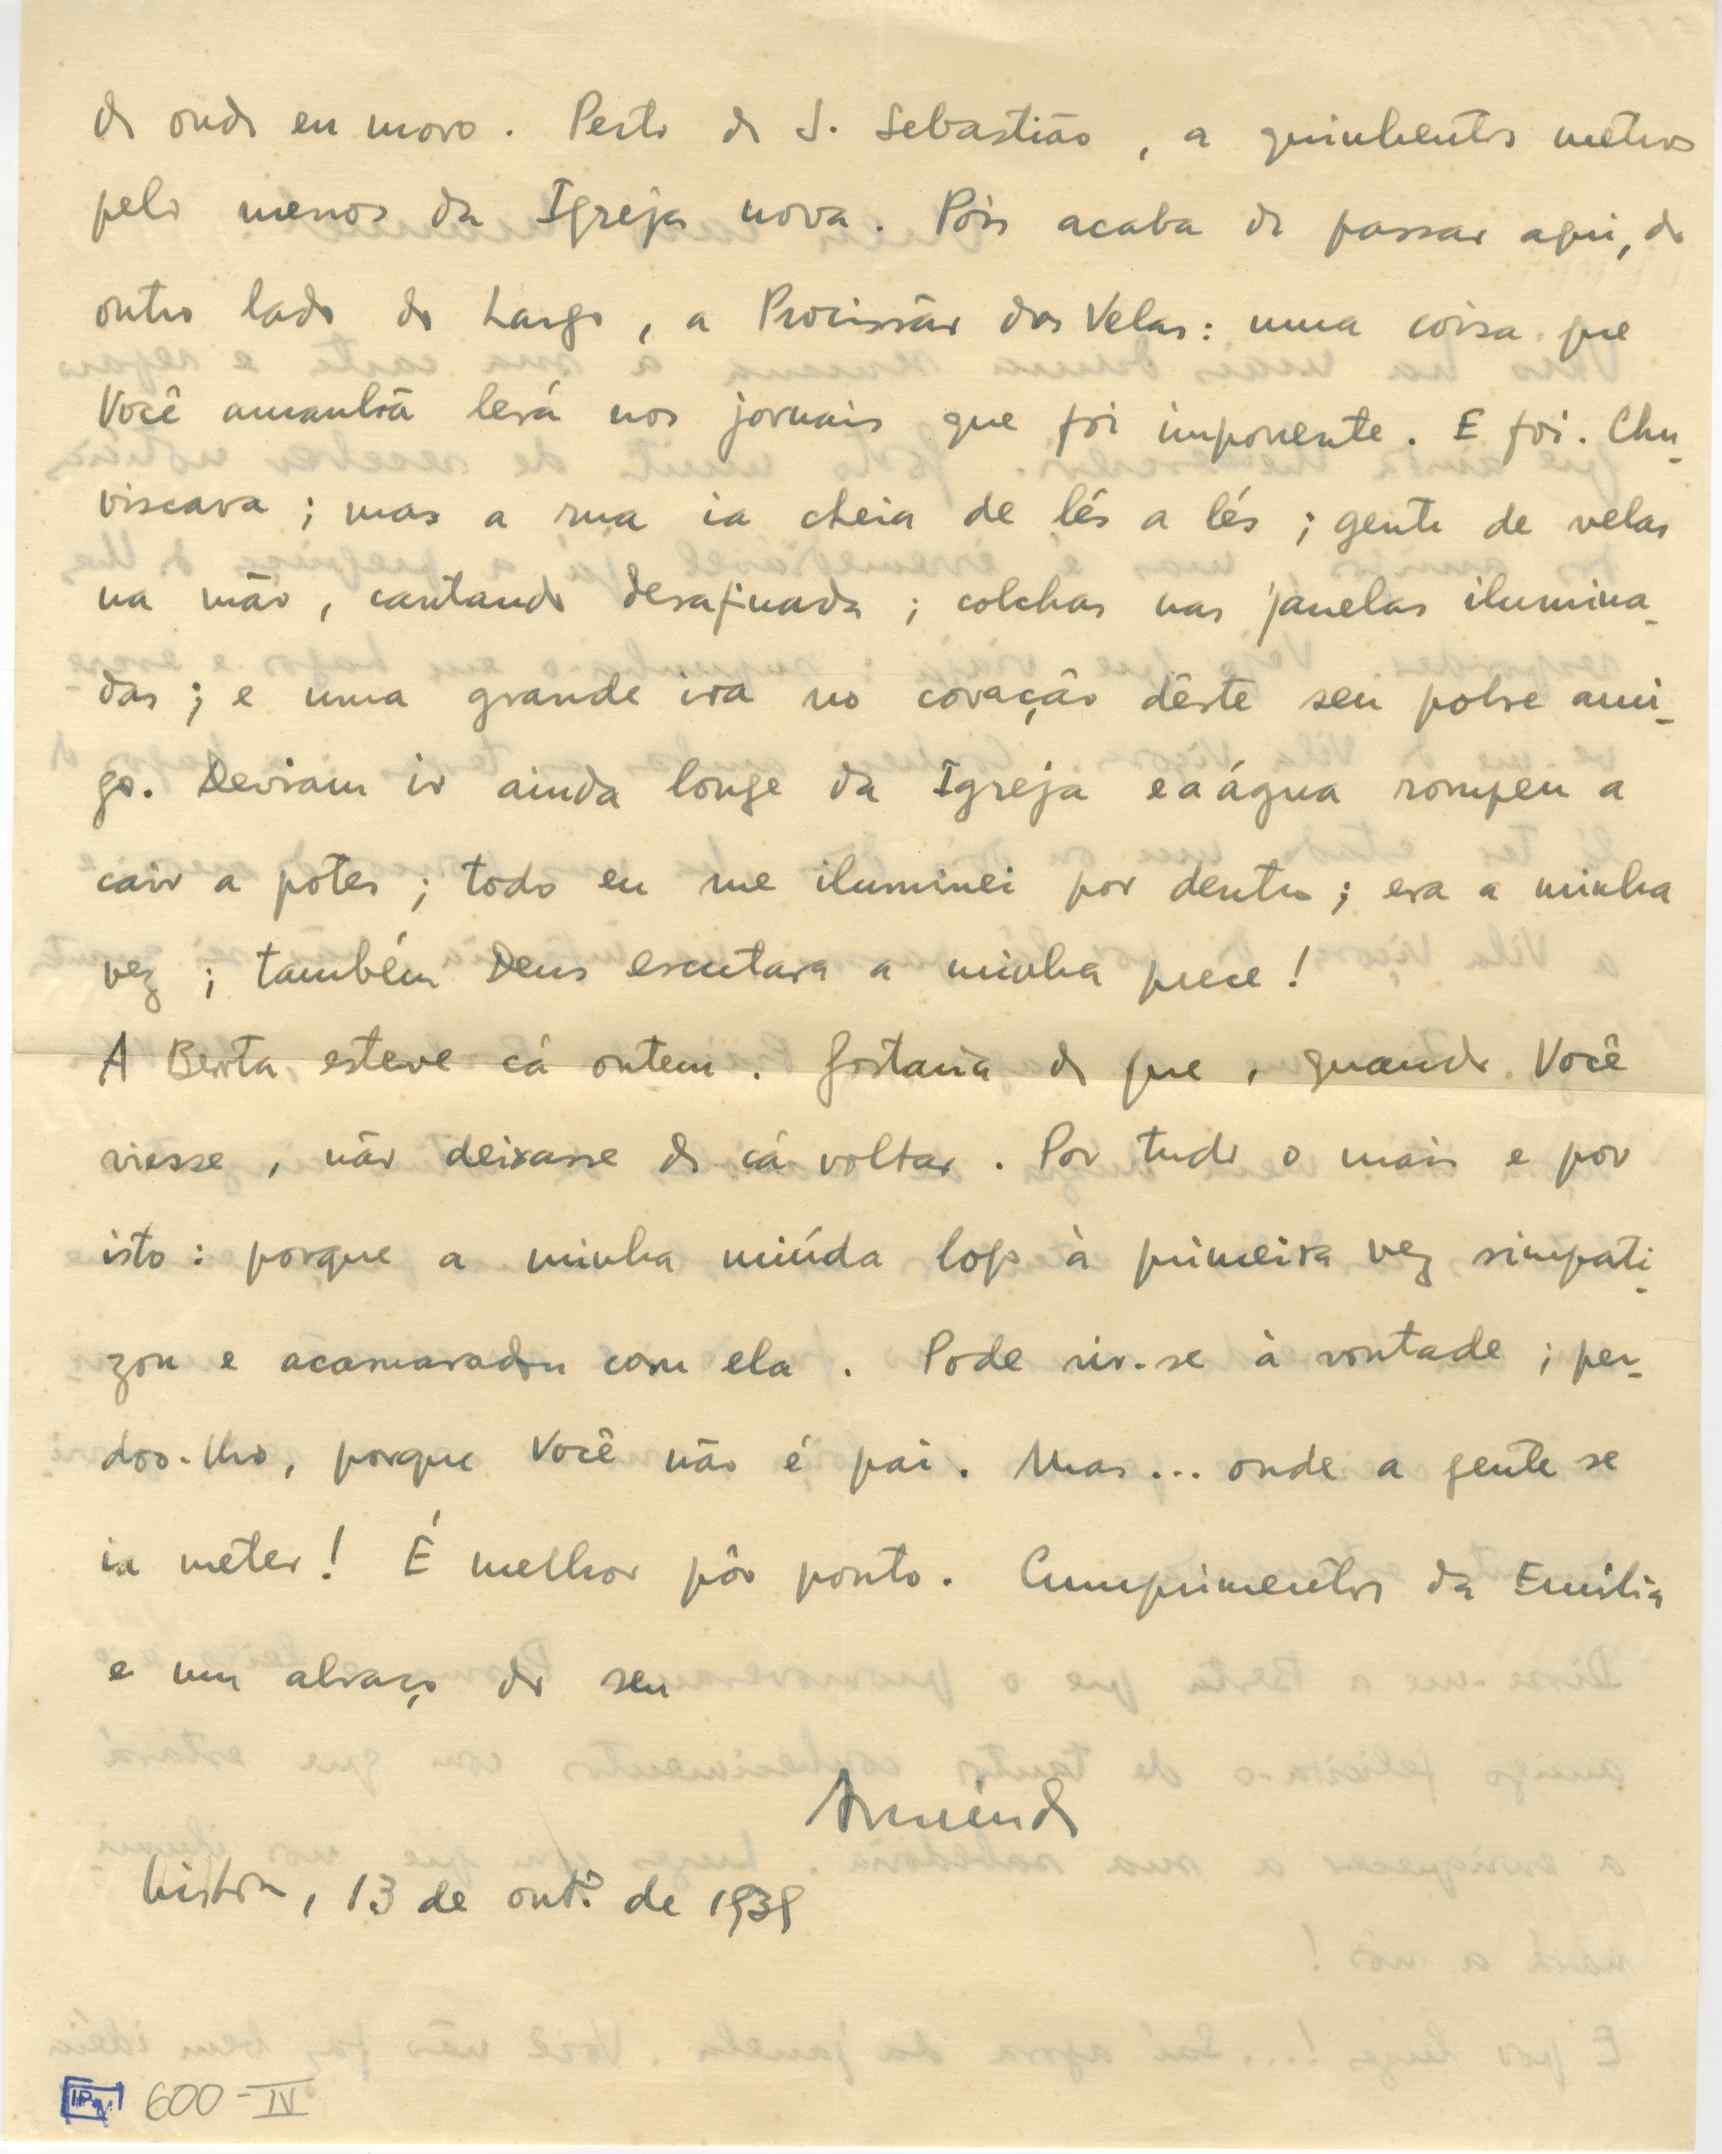 de onde eu moro. Perto de S. Sebastião, a quinhentos metros
pelo menos da Igreja nova. Pois acaba de passar aqui, do
outro lado do Largo, a Procissão das Velas: uma coisa que
Você amanhã lerá nos jornais que foi imponente. E foi. Chu-
viscava; mas a rua ia cheia de lés a lés; gente de velas
na mão, cantando desafinada; colchas nas janelas ilumina-
das; e uma grande ira no coração dêste seu pobre ami-
go. Deviam ir ainda longe da Igreja e a água rompeu a
cair a potes; todo eu me iluminei por dentro; era a minha
vez; também Deus escutara a minha prece!
A Berta esteve cá ontem. Gostaria de que, quando Você
viesse, não deixasse de cá voltar. Por tudo o mais e por
isto: porque a minha miúda logo à primeira vez simpati-
zou e acamaradou com ela. Pode rir-se à vontade; per-
doo-lho, porque Você não é pai. Mas... onde a gente se
ia meter! É melhor pôr ponto. Cumprimentos da Emília
e um abraço do seu
Lisboa, 13 de out.º de 1939
IP
600-IV